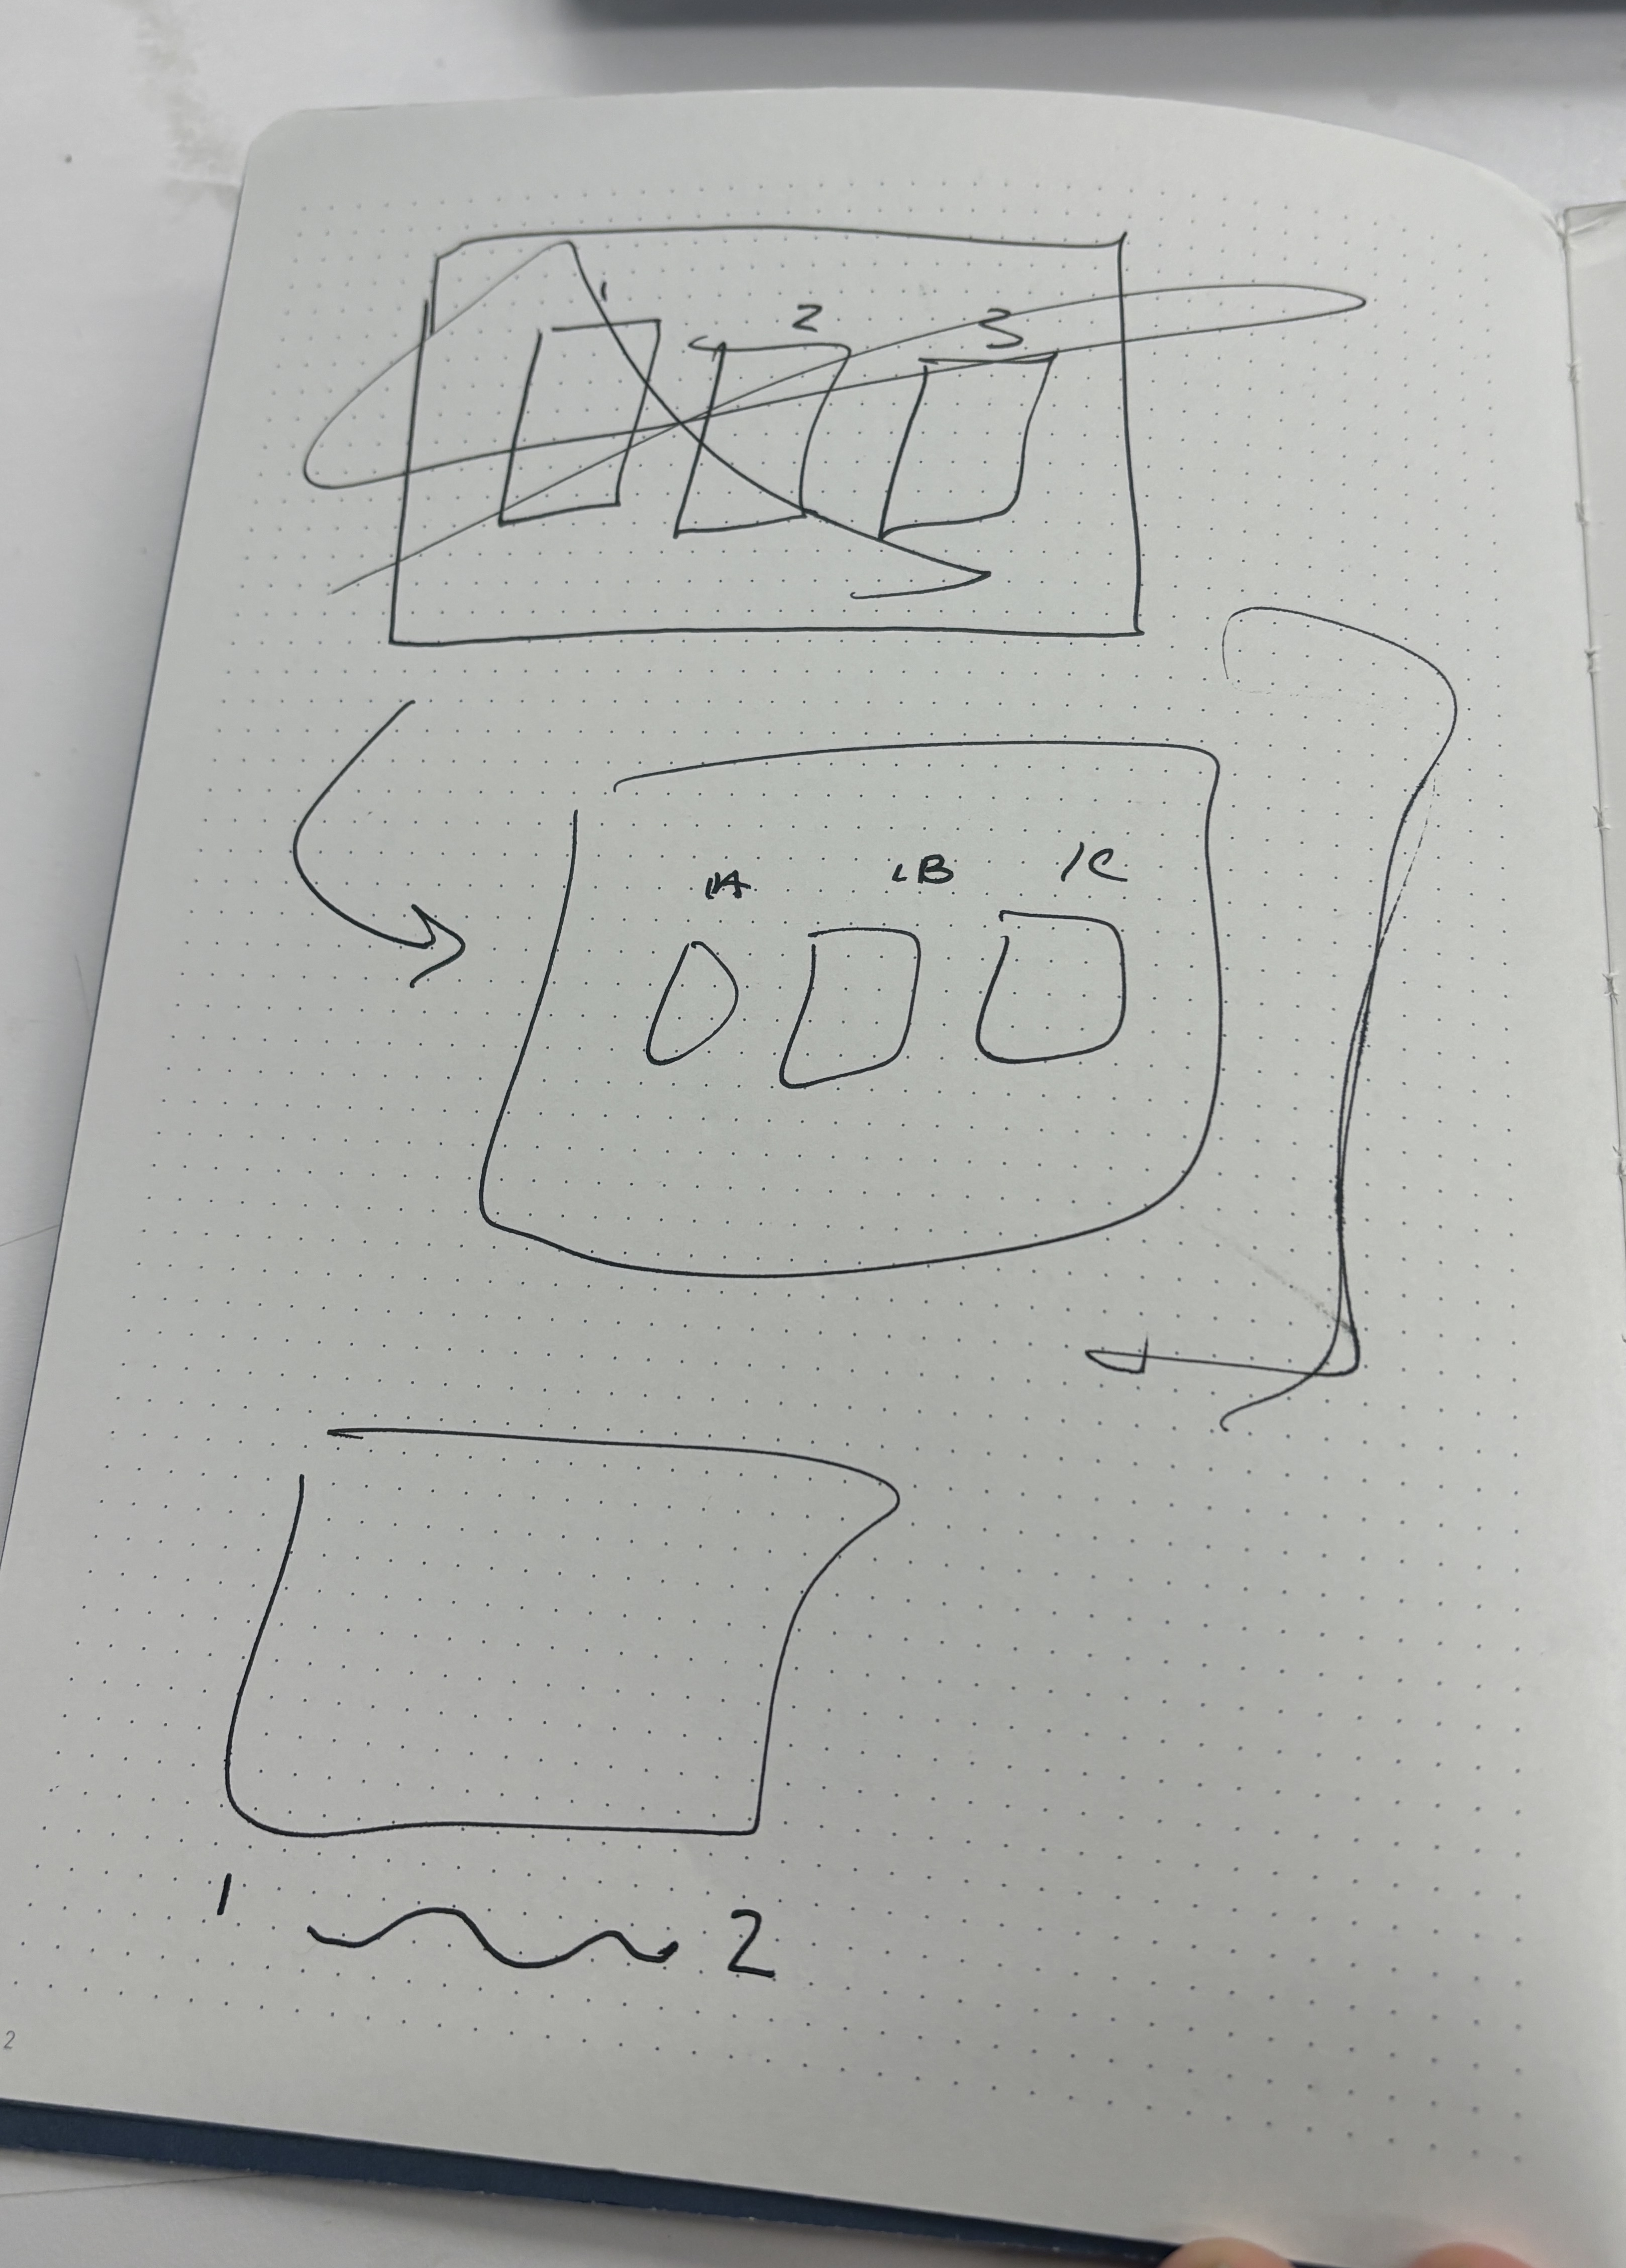 1 2 3
1A 1B 1C
1 2
2